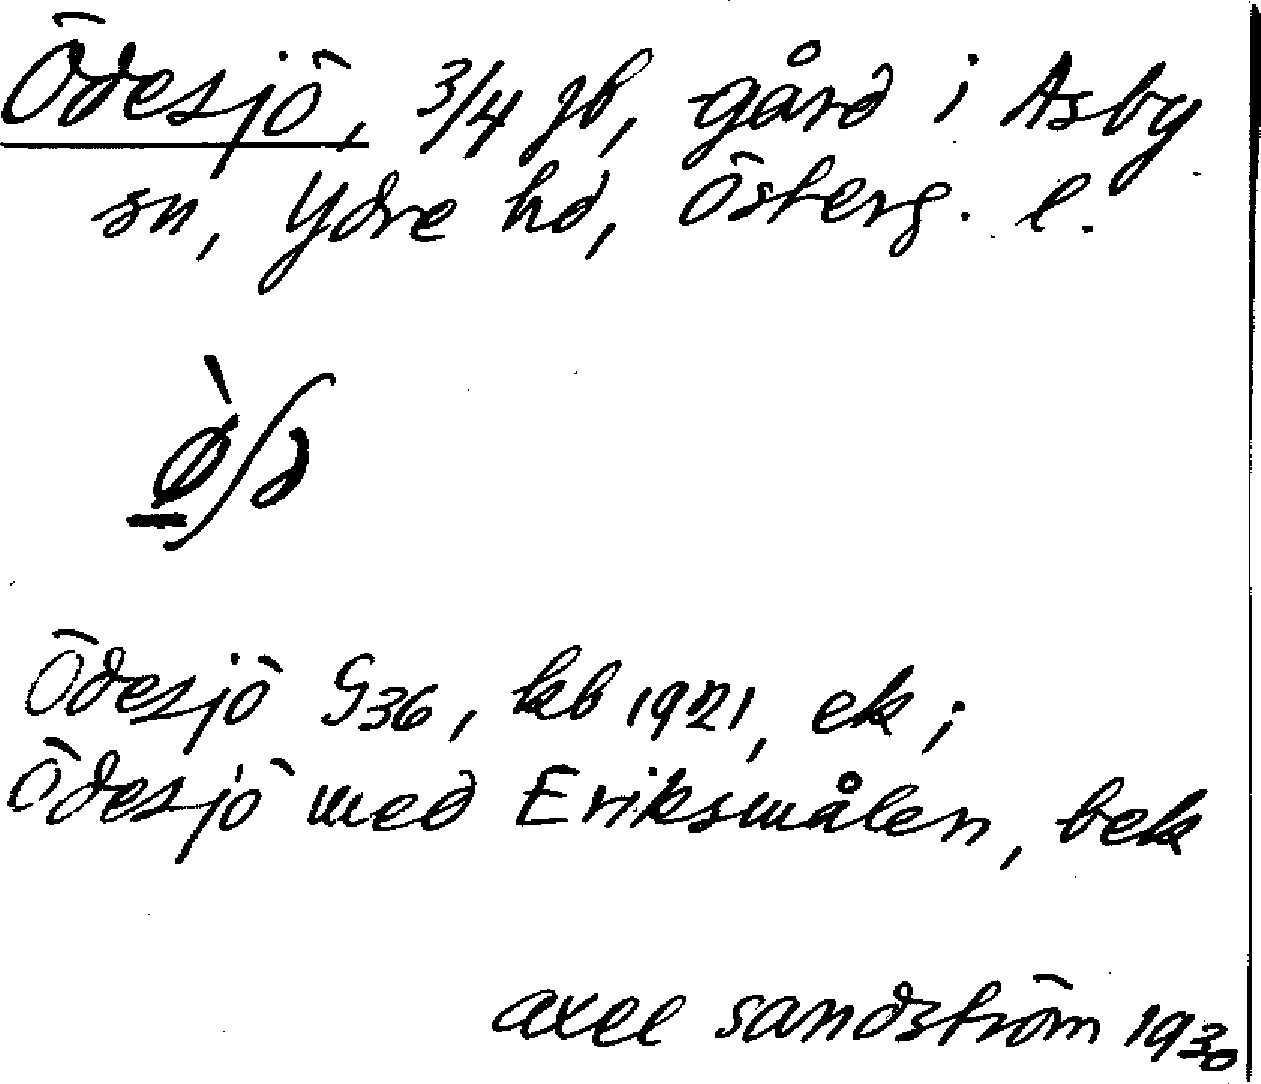 Ödesjö, 3/4 gb, gård i Asby
sn, Ydre hd, Österg. l.
Ödesjö G36, kb 1921, ek;
Ödesjö med Eriksmålen, bek
axel sandström 1930